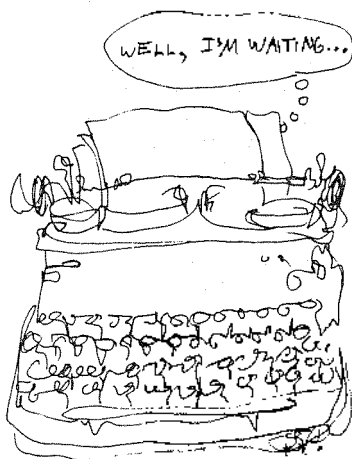 WELL, I'M WAITING...